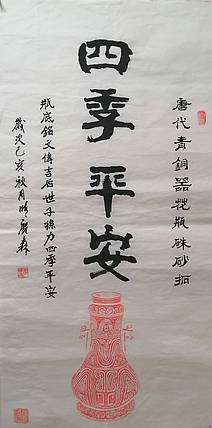 四季平安
唐代青銅器花瓶硃砂拓
瓶底銘文傳吉后世子孫力四季平安
歲次己亥秋月